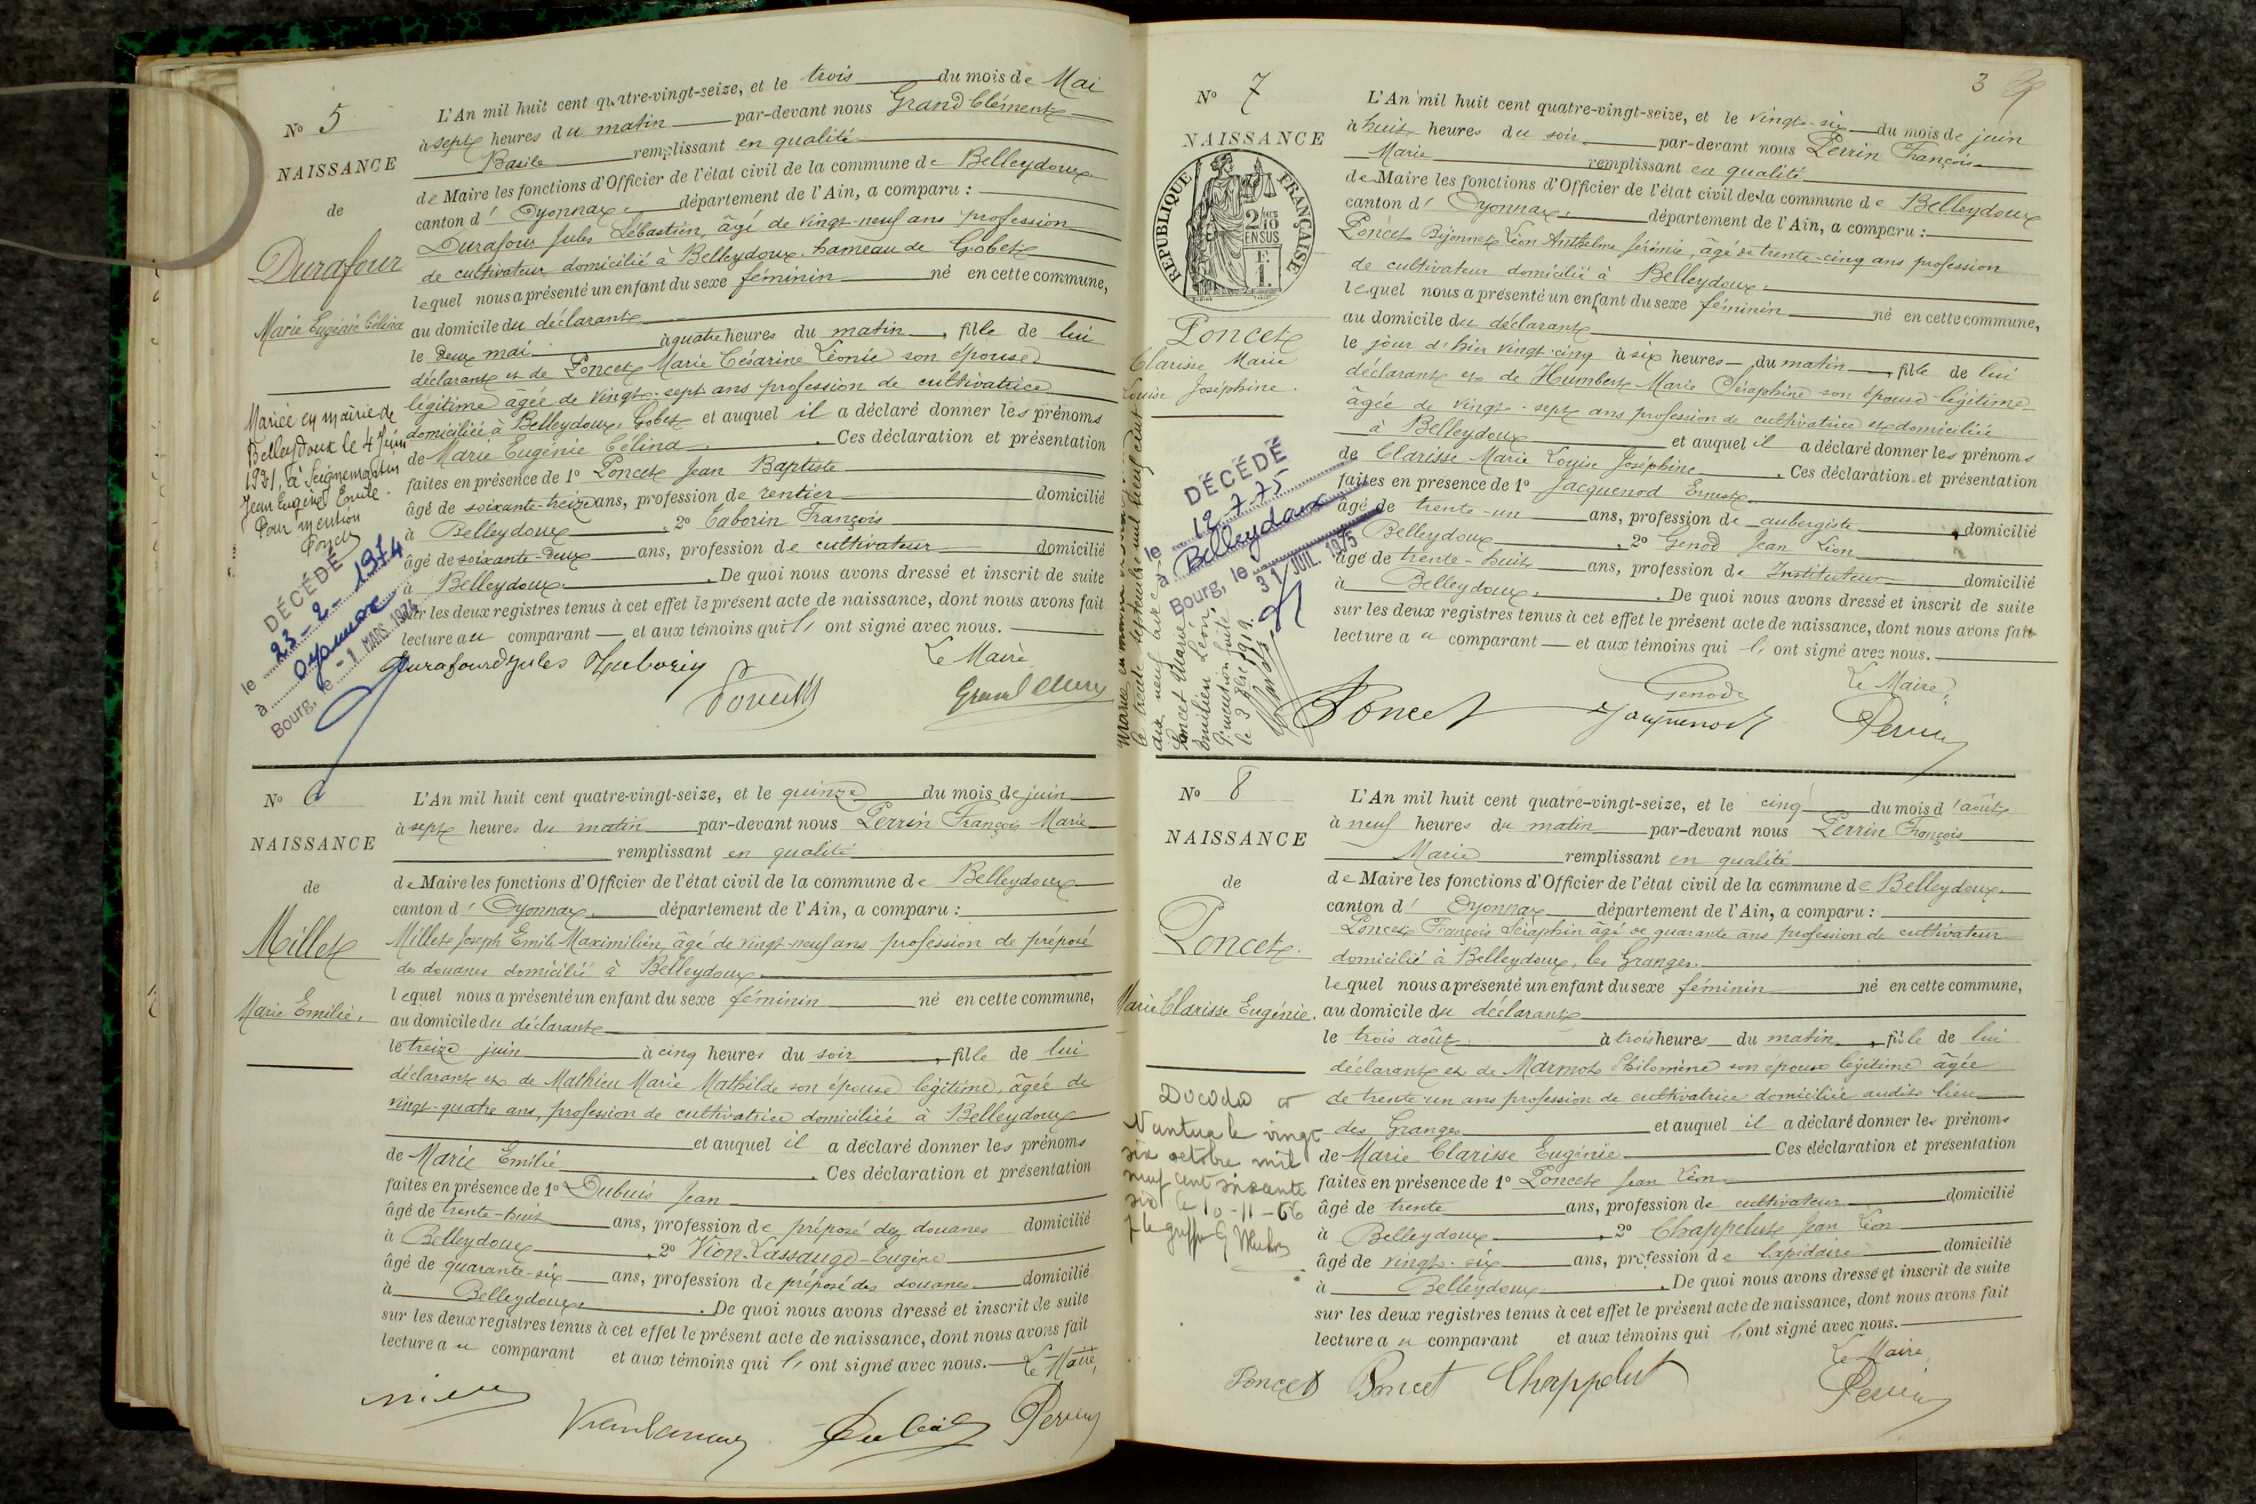 N° 5
NAISSANCE
de
Durafour
Marie Eugénie Célina
Mariée en mairie de
Belleydoux le 4 Juin
1921, à Seignemartin
Jean Eugène Emile.
Pour mention
Poncet
DÉCÉDÉ
le 23-2-1974
à Oyonnax
Bourg, le -1 MARS 1974
L'An mil huit cent quatre-vingt-seize, et le trois du mois de Mai
à sept heures du matin par-devant nous Grand Clément
Basile remplissant en qualité
de Maire les fonctions d'Officier de l'état civil de la commune de Belleydoux
canton d'Oyonnax, département de l'Ain, a comparu :
Durafour Jules Sébastien, âgé de vingt-neuf ans profession
de cultivateur domicilié à Belleydoux, hameau de Gobet
lequel nous a présenté un enfant du sexe féminin né en cette commune,
au domicile du déclarant
le deux mai à quatre heures du matin, fille de lui
déclarant et de Poncet Marie Césarine Léonie son épouse
légitime âgée de vingt-sept ans profession de cultivatrice
domiciliée à Belleydoux, Gobet et auquel il a déclaré donner les prénoms
de Marie Eugénie Célina. Ces déclaration et présentation
faites en présence de 1° Poncet Jean Baptiste
âgé de soixante-treize ans, profession de rentier domicilié
à Belleydoux, 2° Taborin François
âgé de soixante-deux ans, profession de cultivateur domicilié
à Belleydoux. De quoi nous avons dressé et inscrit de suite
sur les deux registres tenus à cet effet le présent acte de naissance, dont nous avons fait
lecture au comparant et aux témoins qui l'ont signé avec nous.
Le Maire
Durafour Jules Taborin
Poncet Grand Clément
N° 6
NAISSANCE
de
Millet
Marie Emilie.
L'An mil huit cent quatre-vingt-seize, et le quinze du mois de juin
à sept heures du matin par-devant nous Perrin François Marie
remplissant en qualité
de Maire les fonctions d'Officier de l'état civil de la commune de Belleydoux
canton d'Oyonnax, département de l'Ain, a comparu :
Millet Joseph Emile Maximilien, âgé de vingt-neuf ans profession de préposé
des douanes domicilié à Belleydoux
lequel nous a présenté un enfant du sexe féminin né en cette commune,
au domicile du déclarant
le treize juin à cinq heures du soir, fille de lui
déclarant et de Mathieu Marie Mathilde son épouse légitime, âgée de
vingt-quatre ans, profession de cultivatrice domiciliée à Belleydoux
et auquel il a déclaré donner les prénoms
de Marie Emilie. Ces déclaration et présentation
faites en présence de 1° Dubuis Jean
âgé de trente-huit ans, profession de préposé des douanes domicilié
à Belleydoux, 2° Vion-Lassauge Eugène
âgé de quarante-six ans, profession de préposé des douanes domicilié
à Belleydoux. De quoi nous avons dressé et inscrit de suite
sur les deux registres tenus à cet effet le présent acte de naissance, dont nous avons fait
lecture au comparant et aux témoins qui l'ont signé avec nous.
Le Maire,
Perrin
3
N° 7
NAISSANCE
RÉPUBLIQUE FRANÇAISE
2/10
EN SUS
Poncet
Clarisse Marie
Louise Joséphine.
DÉCÉDÉ
le 12-7-75
à Belleydoux
Bourg, le 31 JUIL. 1975
Poncet Marie
Emilien Léon,
P. mention faite
le 3 1919.
L'An mil huit cent quatre-vingt-seize, et le vingt-six du mois de juin
à huit heures du soir par-devant nous Perrin François
Marie remplissant en qualité
de Maire les fonctions d'Officier de l'état civil de la commune de Belleydoux
canton d'Oyonnax, département de l'Ain, a comparu :
Poncet Bijonnet Léon Anthelme Jérémie, âgé de trente-cinq ans profession
de cultivateur domicilié à Belleydoux,
lequel nous a présenté un enfant du sexe féminin né en cette commune,
au domicile du déclarant
le jour d'hier vingt-cinq à six heures du matin, fille de lui
déclarant et de Humbert Marie Séraphine son épouse légitime
âgée de vingt-sept ans profession de cultivatrice et domiciliée
à Belleydoux et auquel il a déclaré donner les prénoms
de Clarisse Marie Louise Joséphine. Ces déclaration et présentation
faites en présence de 1° Jacquenod Ernest
âgé de trente-un ans, profession de aubergiste domicilié
à Belleydoux, 2° Genod Jean Léon
âgé de trente-huit ans, profession de Instituteur domicilié
à Belleydoux. De quoi nous avons dressé et inscrit de suite
sur les deux registres tenus à cet effet le présent acte de naissance, dont nous avons fait
lecture au comparant et aux témoins qui l'ont signé avec nous.
Le Maire,
Poncet Genod
Jacquenod Perrin
N° 8
NAISSANCE
de
Poncet.
Marie Clarisse Eugénie.
Décédée à
Nantua le vingt
six octobre mil
neuf cent soixante
six le 10-11-66
L'An mil huit cent quatre-vingt-seize, et le cinq du mois d'août
à neuf heures du matin par-devant nous Perrin François
Marie remplissant en qualité
de Maire les fonctions d'Officier de l'état civil de la commune de Belleydoux.
canton d'Oyonnax département de l'Ain, a comparu :
Poncet François Séraphin âgé de quarante ans profession de cultivateur
domicilié à Belleydoux, les Granges.
lequel nous a présenté un enfant du sexe féminin né en cette commune,
au domicile du déclarant
le trois août à trois heures du matin, fille de lui
déclarant et de Marmot Philomène son épouse légitime âgée
de trente-un ans profession de cultivatrice domiciliée audit lieu
des Granges et auquel il a déclaré donner les prénoms
de Marie Clarisse Eugénie Ces déclaration et présentation
faites en présence de 1° Poncet Jean Léon
âgé de trente ans, profession de cultivateur domicilié
à Belleydoux, 2° Chappelut Jean Léon
âgé de vingt-six ans, profession de lapidaire domicilié
à Belleydoux. De quoi nous avons dressé et inscrit de suite
sur les deux registres tenus à cet effet le présent acte de naissance, dont nous avons fait
lecture au comparant et aux témoins qui l'ont signé avec nous.
Le Maire
Poncet Poncet Chappelut Perrin